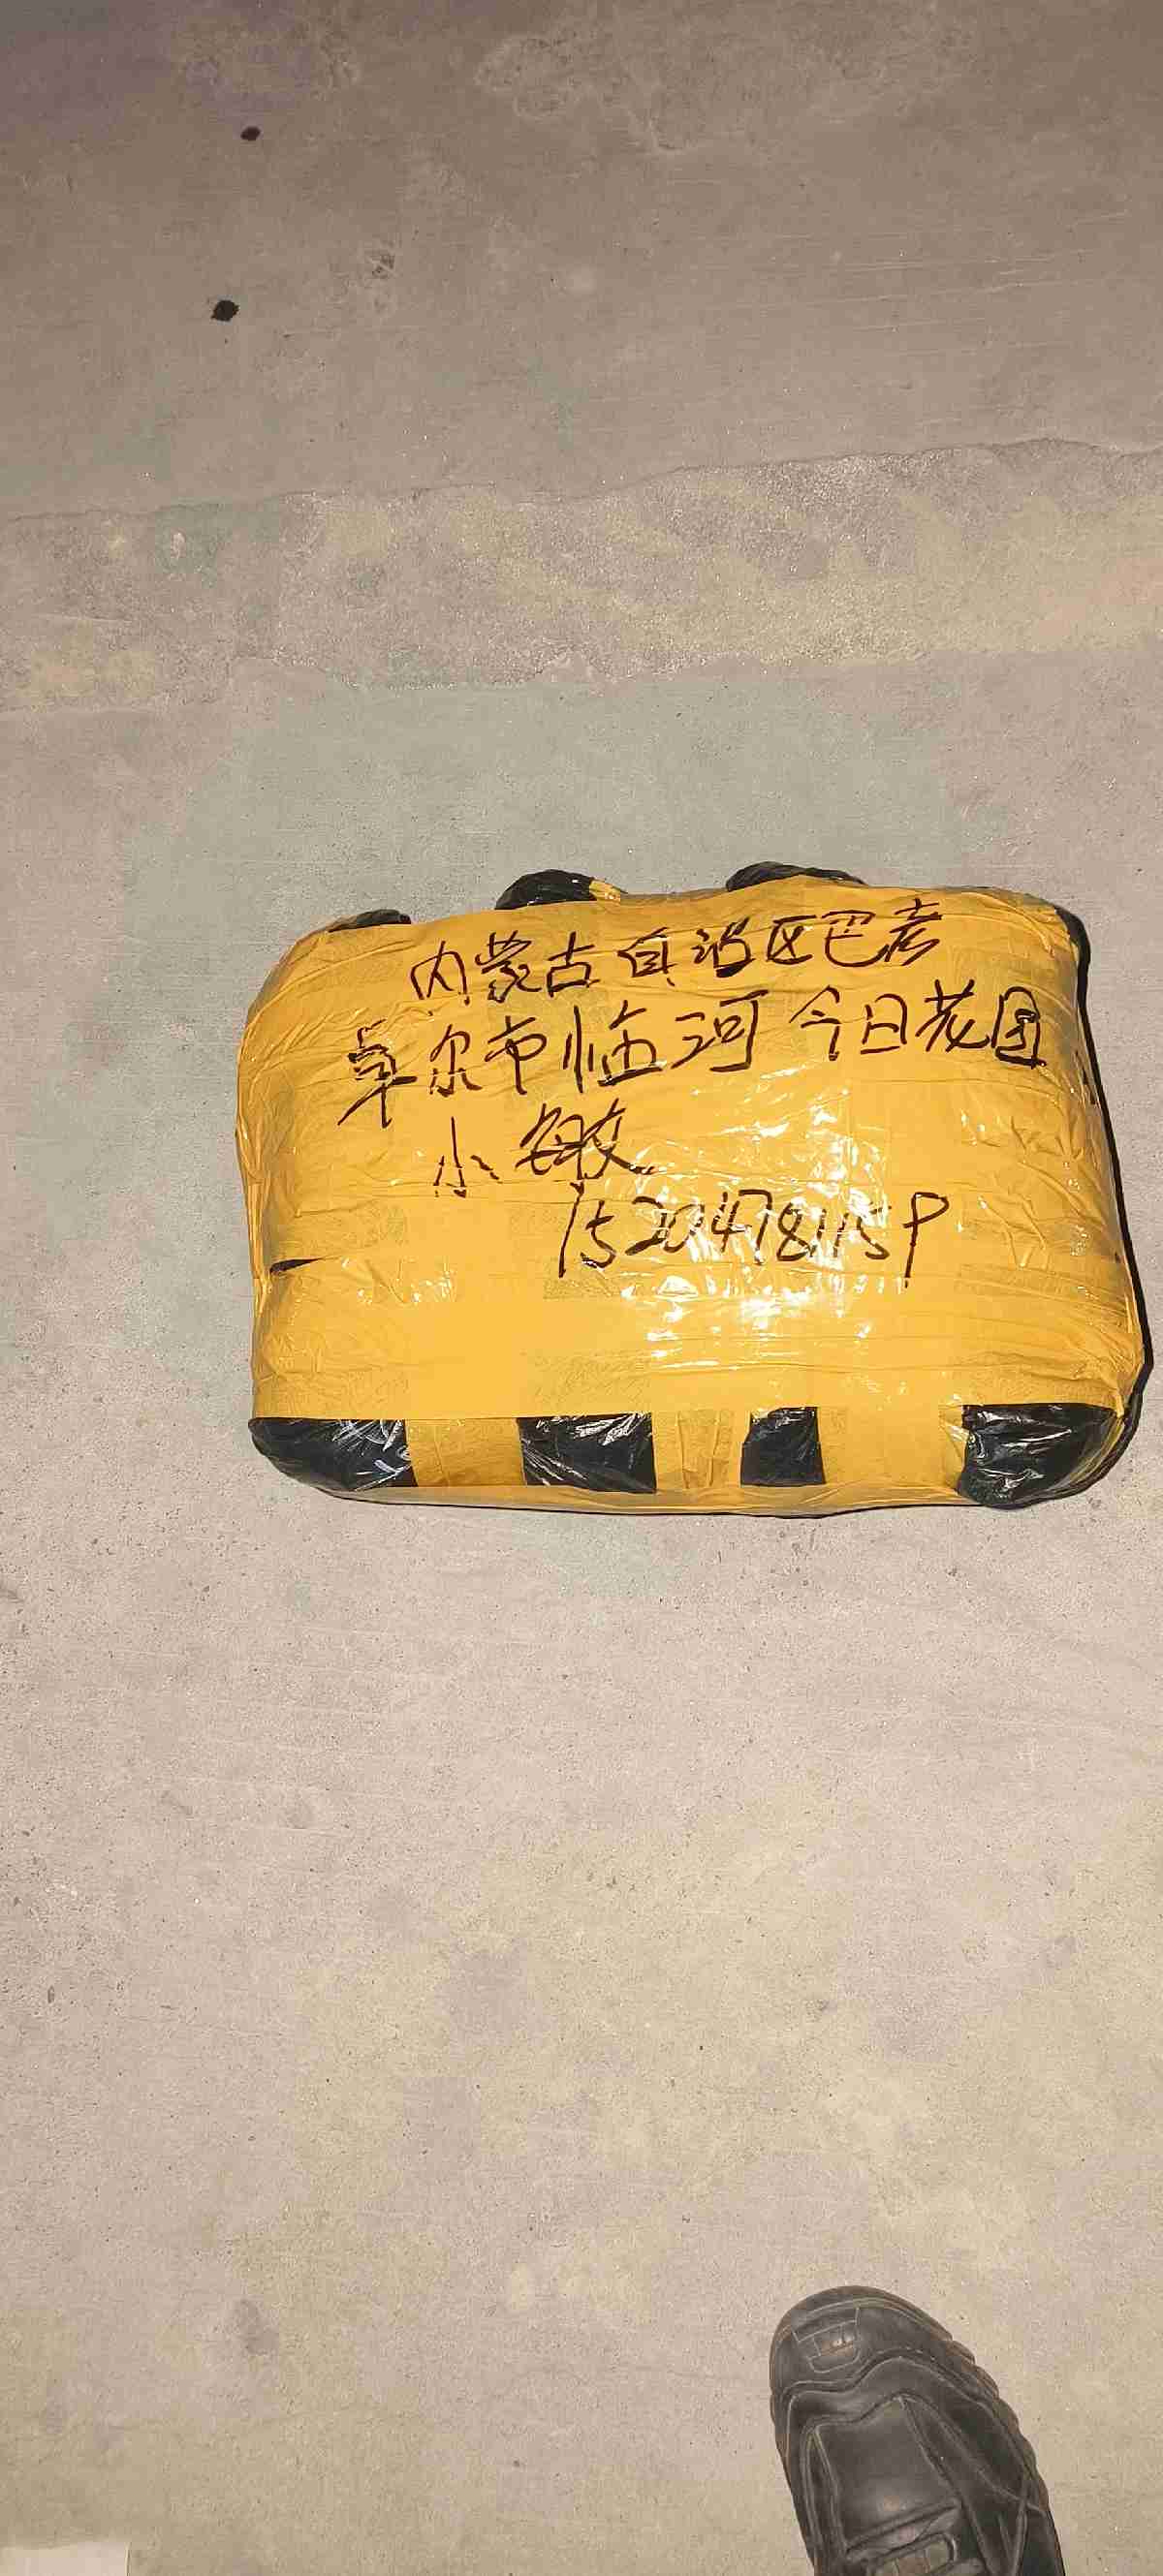 内蒙古自治区巴彦
卓尔市临河今日花园
小敏
15204781159